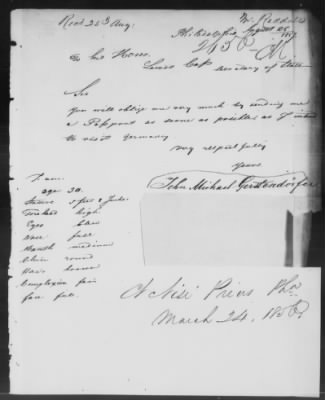 Recd 25th Aug:
Philadelphia August 25 1857
To his Honor
Lewis Cass
Secretary of State
Sir
You will oblige me very much by sending me
a Passport as soon as possible as I intend
to visit Germany
Very respectfully
Yours
John Michael Gerstendörfer
age 30
Stature 5 feet 2 Inches
Forehead high
Eyes blue
Nose full
Mouth medium
Chin round
Hair brown
Complexion fair
face full
At Nisi Prius Phla
March 24, 1856